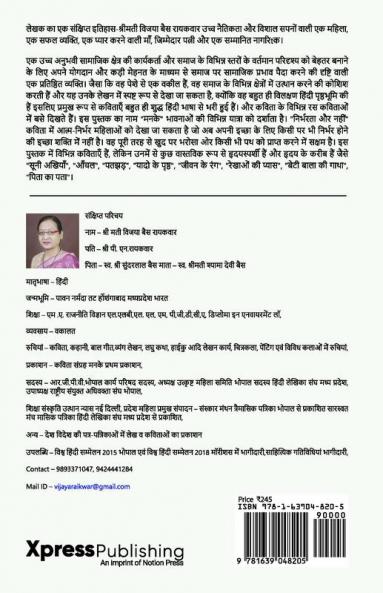 लेखक का एक संक्षिप्त इतिहास-श्रीमती विजया बैस रायकवार उच्च नैतिकता और विशाल सपनों वाली एक महिला,
एक सफल व्यक्ति, एक प्यार करने वाली माँ, जिम्मेदार पत्नी और एक सम्मानित नागरिक।
एक उच्च अनुभवी सामाजिक क्षेत्र की कार्यकर्ता और समाज के विभिन्न स्तरों के वर्तमान परिदृश्य को बेहतर बनाने
के लिए अपने योगदान और कड़ी मेहनत के माध्यम से समाज पर सामाजिक प्रभाव पैदा करने की दृष्टि वाली
एक प्रतिष्ठित व्यक्ति। जैसा कि वह पेशे से एक वकील हैं, वह समाज के विभिन्न क्षेत्रों में उत्थान करने की कोशिश
करती हैं और यह उनके लेखन में स्पष्ट रूप से देखा जा सकता है, क्योंकि वह बहुत ही विलक्षण हिंदी पृष्ठभूमि की
हैं इसलिए प्रमुख रूप से कविताएँ बहुत ही शुद्ध हिंदी भाषा से भरी हुई हैं। और कविता के विभिन्न रस कविताओं
में बसे दिखते हैं। इस पुस्तक का नाम "मनके" भावनाओं की विभिन्न यात्रा को दर्शाता है। "निर्भरता और नहीं"
कविता में आत्म-निर्भर महिलाओं को देखा जा सकता है जो अब अपनी इच्छा के लिए किसी पर भी निर्भर होने
की इच्छा शक्ति में नहीं है। वह पूरी तरह से खुद पर भरोसा ओर किसी भी पथ को प्राप्त करने में सक्षम है। इस
पुस्तक में विभिन्न कविताएँ हैं, लेकिन उनमें से कुछ वास्तविक रूप से हृदयस्पर्शी हैं और हृदय के करीब हैं जैसे
"सूनी अखियाँ", "आँचल", "पतझड़", "यादो के पृष्ठ", "जीवन के रंग", "रेखाओं की प्यास", "बेटी बाला की गाथा",
"पिता का पता"।
संक्षिप्त परिचय
नाम – श्री मती विजया बैस रायकवार
पति – श्री पी. एन.रायकवार
पिता – स्व. श्री सुंदरलाल बैस माता – स्व. श्रीमती श्यामा देवी बैस
मातृभाषा – हिंदी
जन्मभूमि – पावन नर्मदा तट होशंगाबाद मध्यप्रदेश भारत
शिक्षा – एम .ए. राजनीति विज्ञान एल.एलबी,एल. एल. एम, पी.जी.डी.सी,ए, डिप्लोमा इन एनवायरमेंट लॉ,
व्यवसाय – वकालत
रुचियां – कविता, कहानी, बाल गीत,व्यंग लेखन, लघु कथा, हाईकु आदि लेखन कार्य, चित्रकला, पेंटिंग एवं विविध कलाओं में रुचियां,
प्रकाशन – कविता संग्रह मनके प्रथम प्रकाशन,
सदस्य – आर.जी.पी.वी.भोपाल कार्य परिषद सदस्य, अध्यक्ष उत्कृष्ट महिला समिति भोपाल सदस्य हिंदी लेखिका संघ मध्य प्रदेश,
उपाध्यक्ष राष्ट्रीय संयुक्त अधिवक्ता संघ भोपाल,
शिक्षा संस्कृति उत्थान न्यास नई दिल्ली, प्रदेश महिला प्रमुख संपादन – संस्कार मंथन त्रैमासिक पत्रिका भोपाल से प्रकाशित सारस्वत
मंच मासिक पत्रिका हिंदी लेखिका संघ मध्य प्रदेश से प्रकाशित,
अन्य – देश विदेश की पत्र-पत्रिकाओं में लेख व कविताओं का प्रकाशन
उपलब्धि – विश्व हिंदी सम्मेलन 2015 भोपाल एवं विश्व हिंदी सम्मेलन 2018 मॉरीशस में भागीदारी,साहित्यिक गतिविधियां भागीदारी,
Contact – 9893371047, 9424441284
Mail ID – vijayaraikwar@gmail.com
Price ₹245
ISBN 978-1-63904-820-5
90000
9 781639 048205
XpressPublishing
An imprint of Notion Press